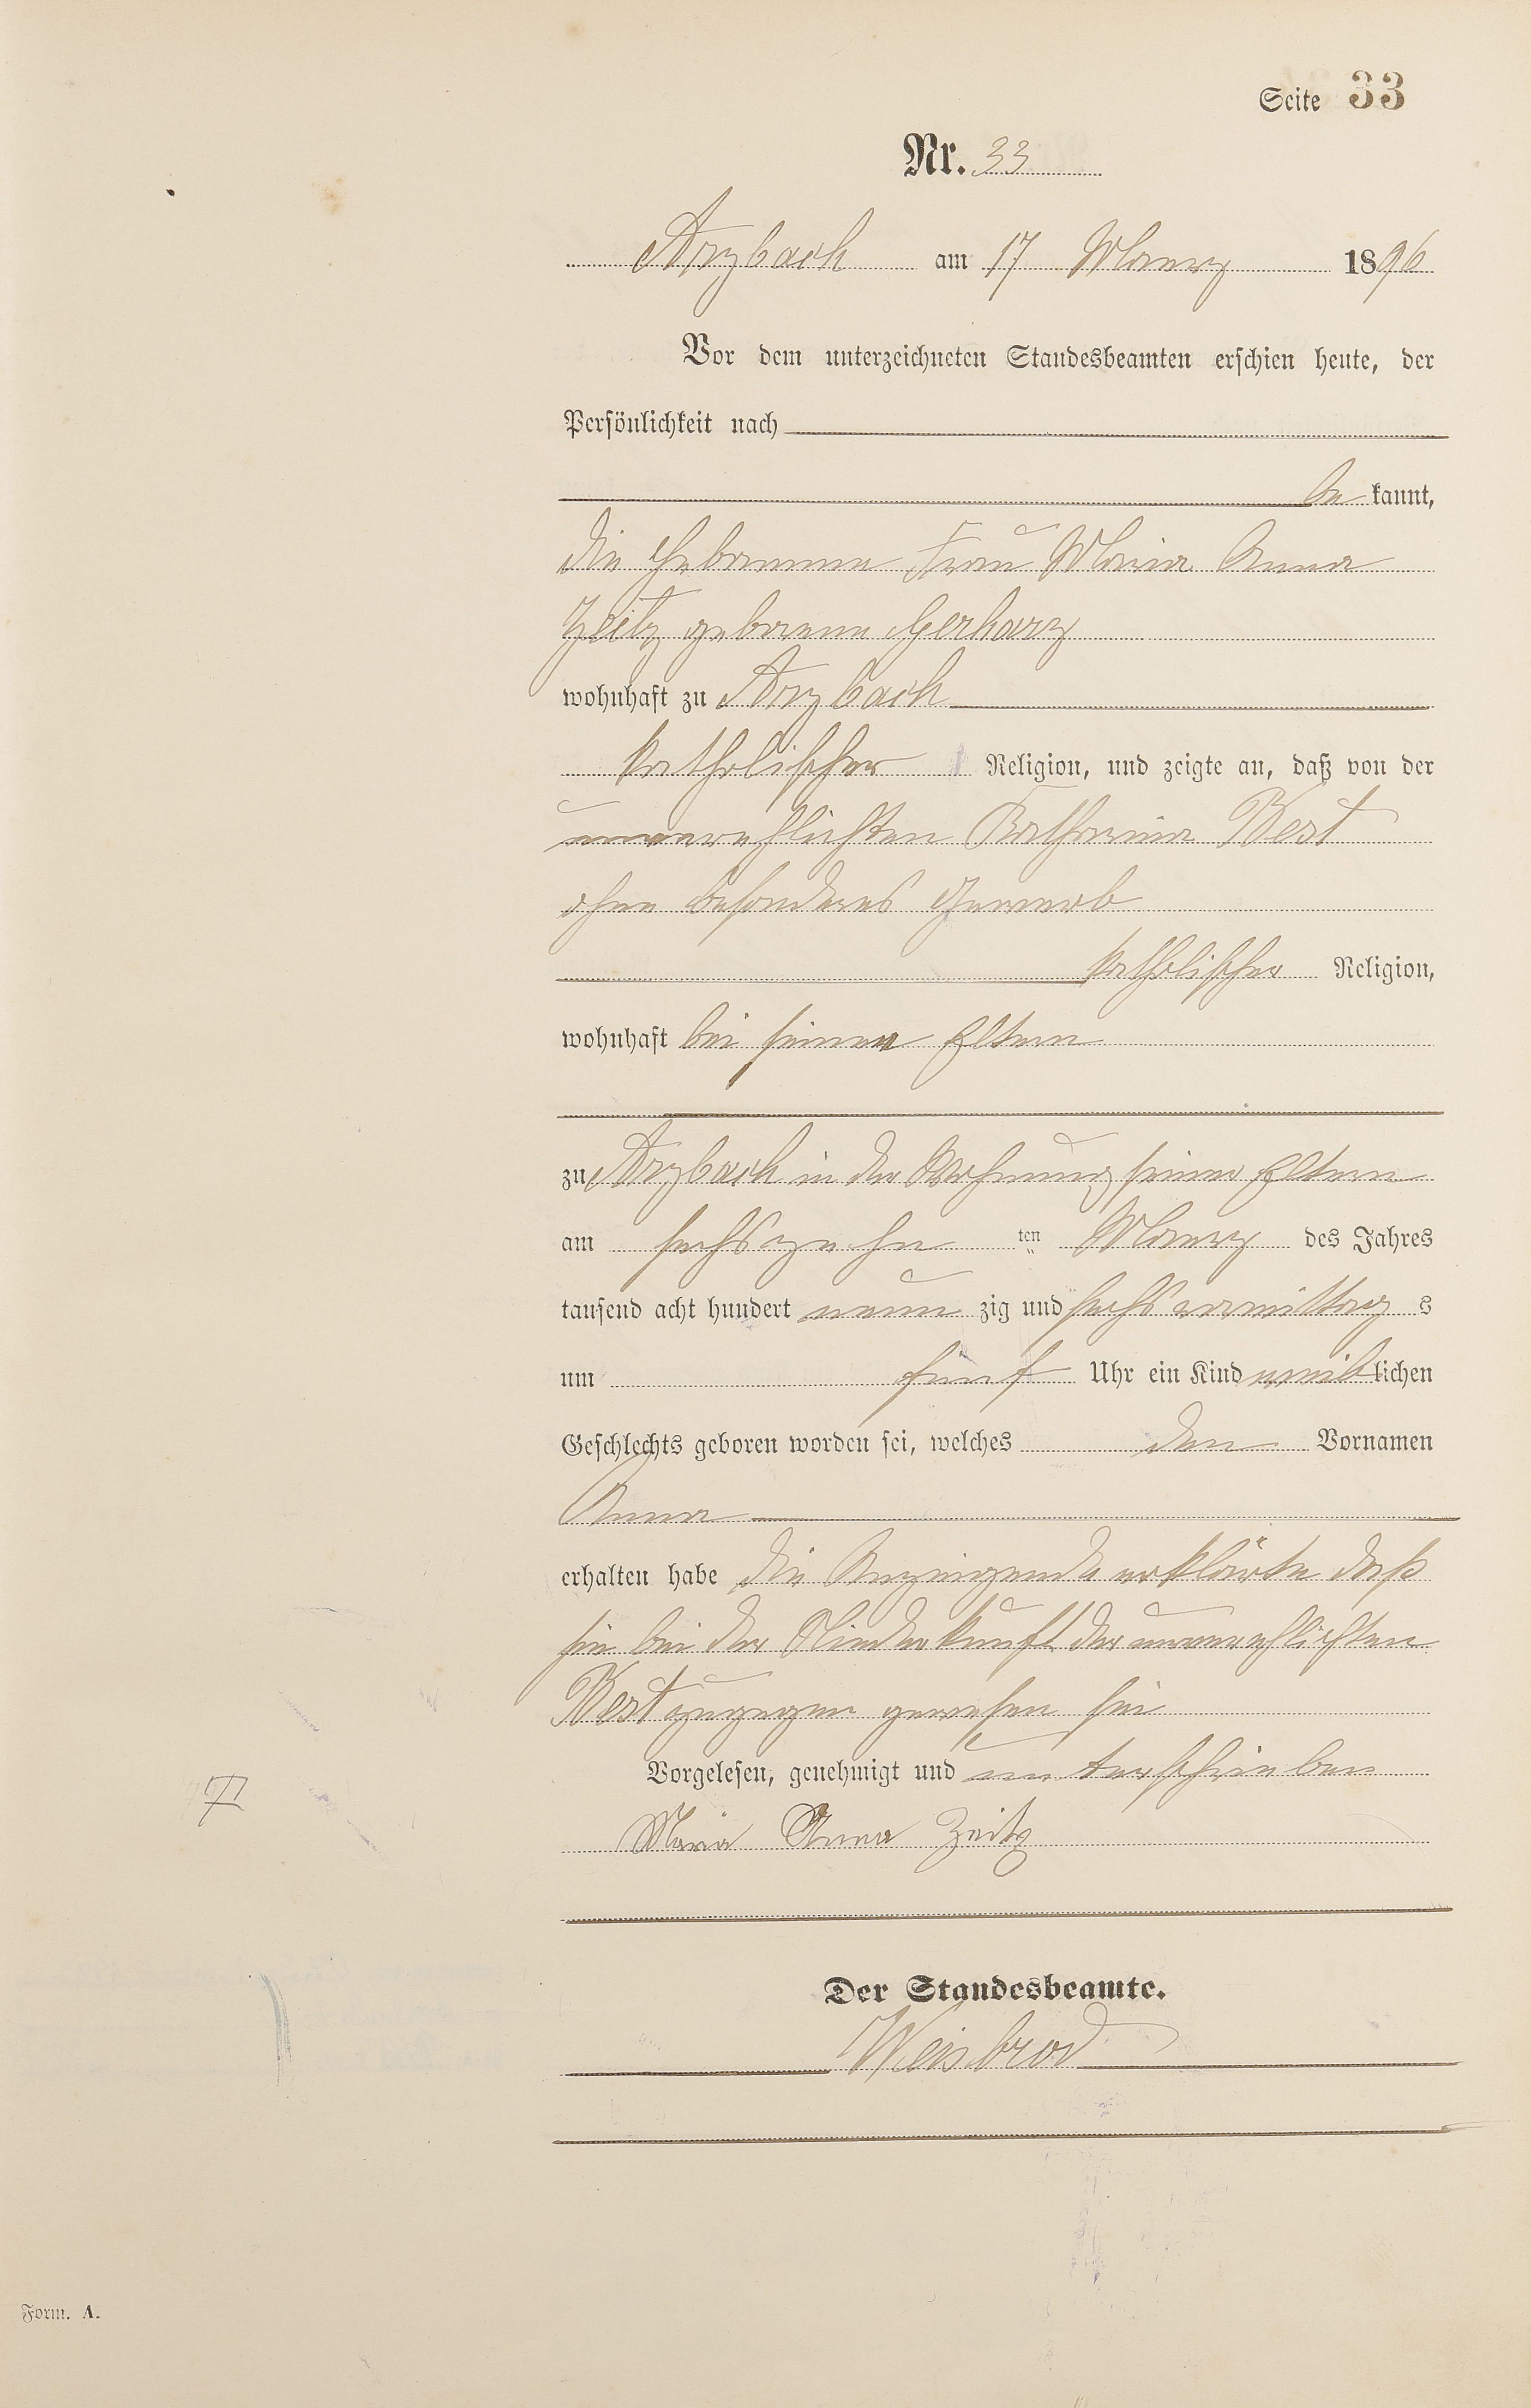 Seite 33
Nr. 33
Arzbach am 17 Maerz 1896
Vor dem unterzeichneten Standesbeamten erschien heute, der
Persönlichkeit nach
be kannt,
die Hebamme Frau Maria Anna
Zeitz geborene Gerharz
wohnhaft zu Arzbach
katholischer Religion, und zeigte an, daß von der
unverehlichten Katharina Best
ohne besonderes Gewerb
katholischer Religion,
wohnhaft bei seinen Eltern
zu Arzbach in der Wohnung seiner Eltern
am sechszehn ten Maerz des Jahres
tausend acht hundert neun zig und sechs vormittag s
um fünf Uhr ein Kind weib lichen
Geschlechts geboren worden sei, welches den Vornamen
Anna
erhalten habe die Anzeigende erklärte daß
sie bei der Niederkunft der unverehlichten
Best zugegen gewesen sei
Vorgelesen, genehmigt und unterschrieben
Maria Anna Zeitz
Der Standesbeamte.
Weisbrod
Form. A.